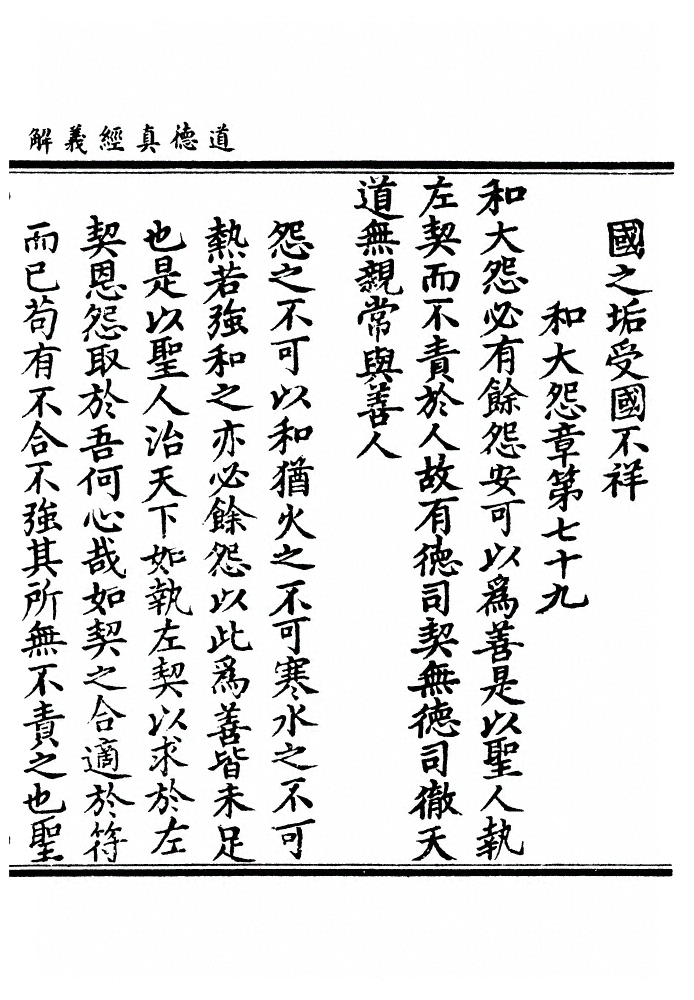 道德真經義解
國之垢受國不祥
和大怨章第七十九
和大怨必有餘怨安可以爲善是以聖人執
左契而不責於人故有德司契無德司徹天
道無親常與善人
怨之不可以和猶火之不可寒水之不可
熱若強和之亦必餘怨以此爲善皆未足
也是以聖人治天下如執左契以求於左
契恩怨取於吾何心哉如契之合適於符
而已苟有不合不強其所無不責之也聖